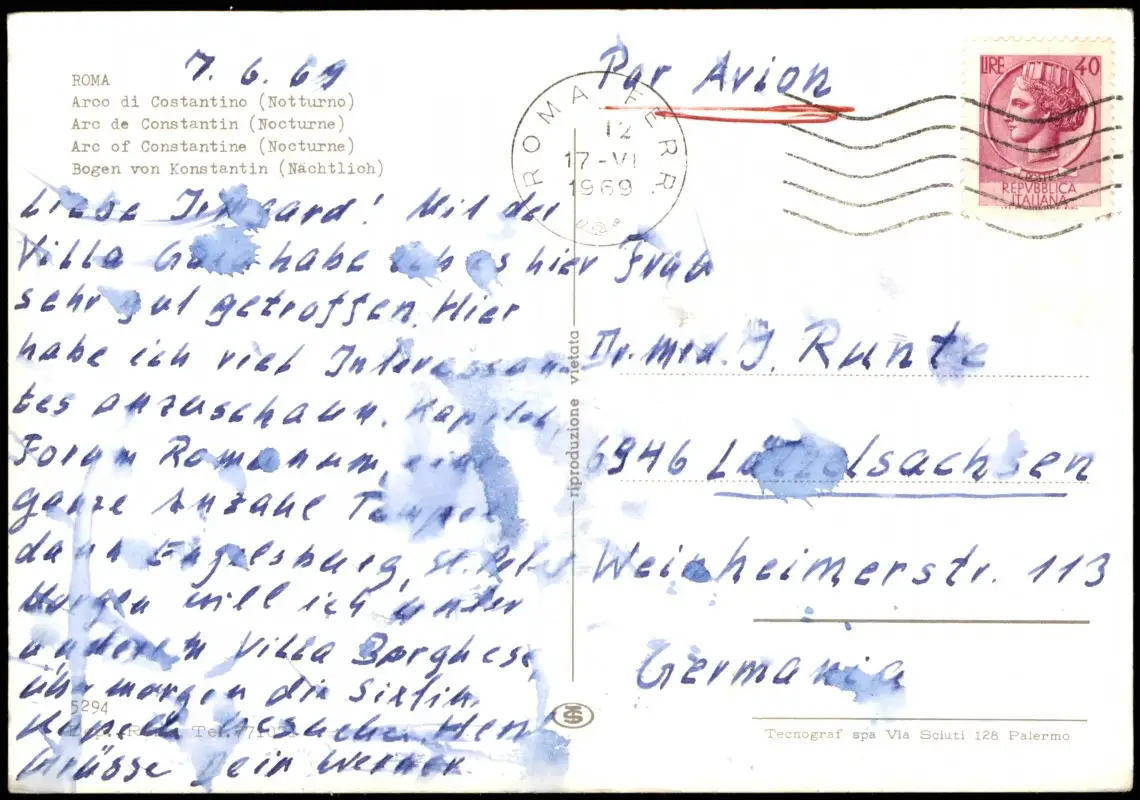 ROMA
Arco di Costantino (Notturno)
Arc de Constantin (Nocturne)
Arc of Constantine (Nocturne)
Bogen von Konstantin (Nächtlich)
7. 6. 69
Liebe Irmgard! Mit der
Villa habe ich es hier
sehr gut getroffen. Hier
habe ich viel Interessan
tes anzuschaun. Kapitol,
Forum Romanum, eine
ganze Anzahl Tempel
dann Engelsburg, St. Peter
Morgen will ich unter
anderem Villa Borghese,
übermorgen die Sixtin.
Kapelle besuchen. Herzl
Grüsse Dein Werner
5294
riproduzione vietata
Par Avion
ROMA FERR.
12
17-VI
1969
LIRE 40
POSTE
REPVBBLICA
ITALIANA
Frau
Dr. med. I. Runte
6946 Lützelsachsen
Weinheimerstr. 113
Germania
Tecnograf spa Via Sciuti 128 Palermo